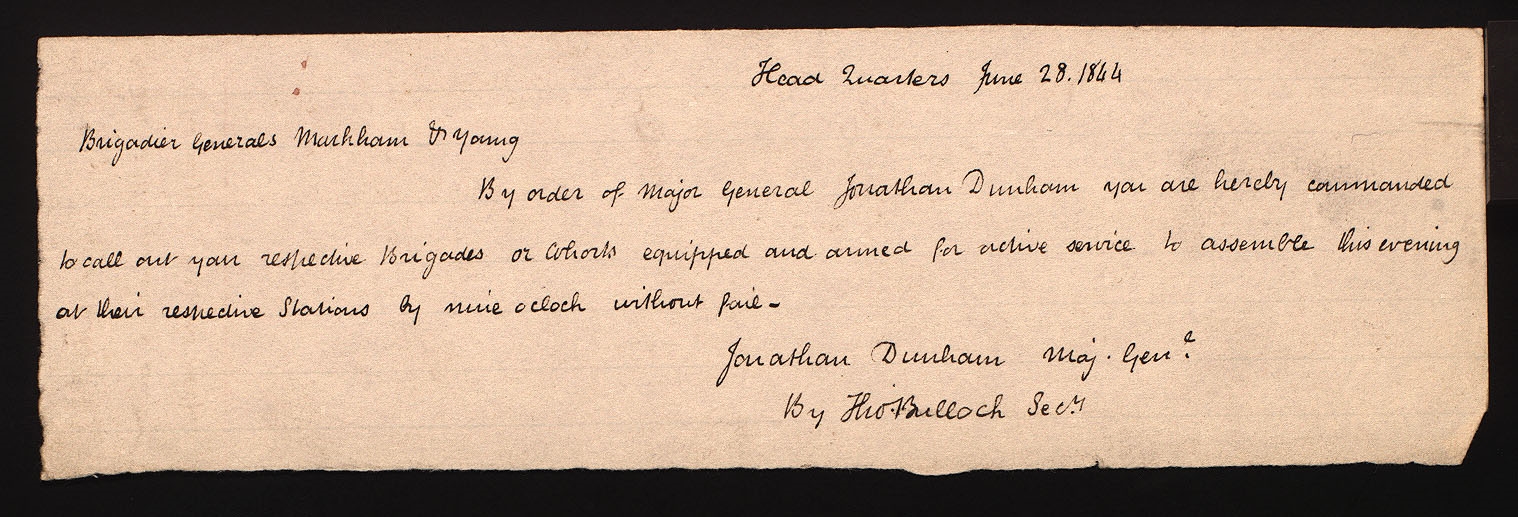 Head Quarters June 28. 1844
Brigadier Generals Markham & Young
By order of Major General Jonathan Dunham you are hereby commanded
to call out your respective Brigades or Cohorts equipped and armed for active service to assemble this evening
at their respective Stations by nine oclock without fail-
Jonathan Dunham Maj. Genl
By Tho.Bullock Secy